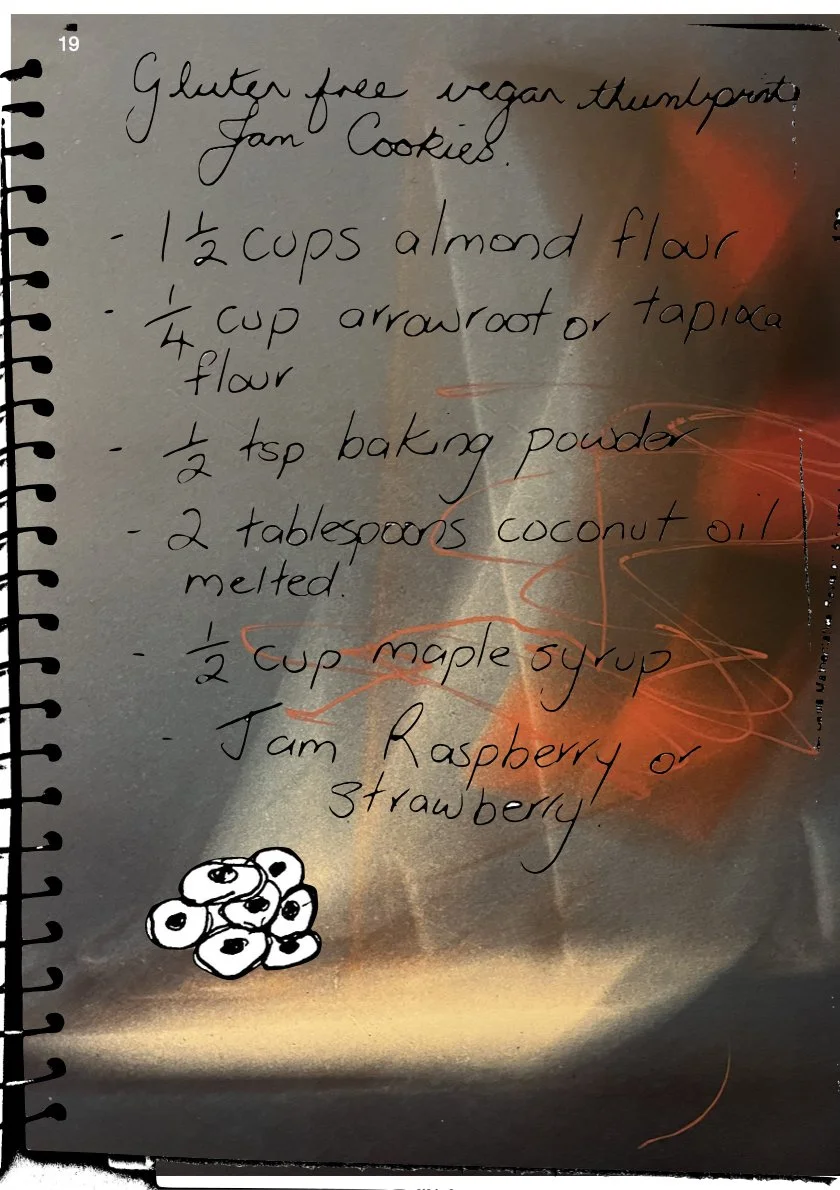 19
Gluten free vegan thumbprint
Jam Cookies.
- 1 1/2 cups almond flour
- 1/4 cup arrowroot or tapioca
flour
- 1/2 tsp baking powder
- 2 tablespoons coconut oil
melted.
- 1/2 cup maple syrup
- Jam Raspberry or
strawberry.